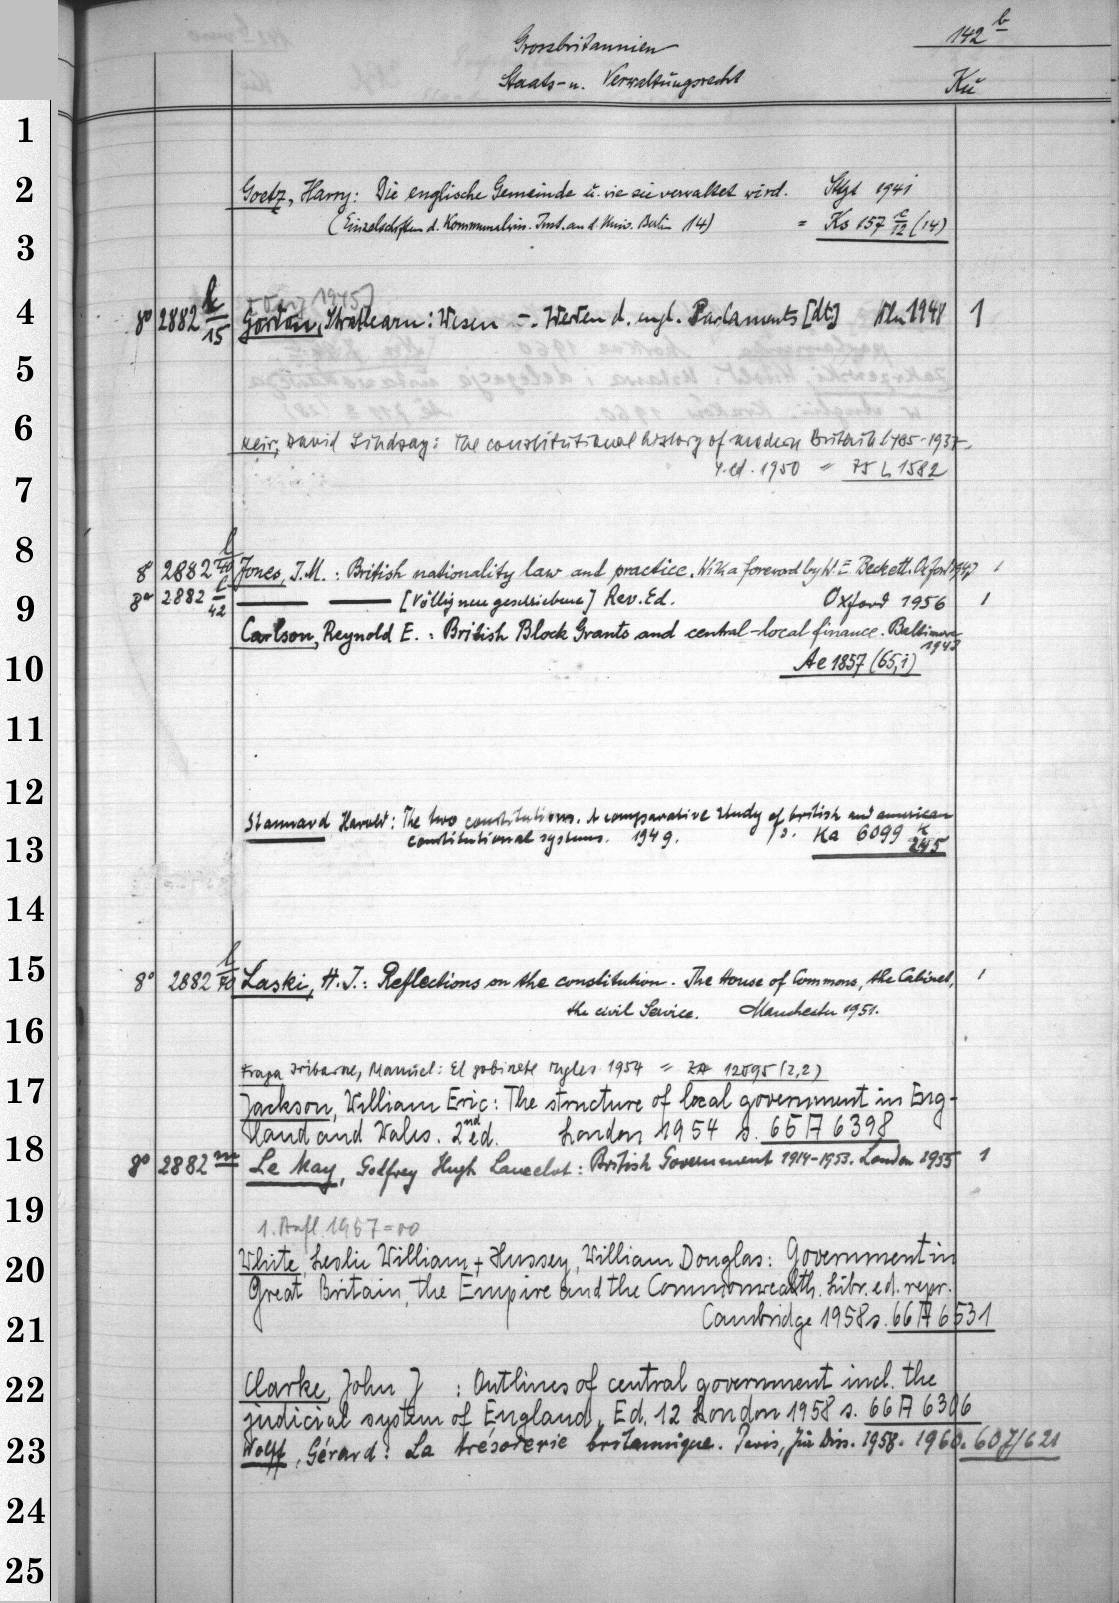 142 b
Grossbritannien
Staats- u. Verwaltungsrecht Kü
1
2 Goetz, Harry: Die englische Gemeinde u. wie sie verwaltet wird. Sttgt 1941
(Einzelschriften d. Kommunalwiss. Inst. an d. Univ. Berlin 14) = Ks 157 c/12 (14)
3
1945]
4 8° 2882 l/15 Gordon, Strathearn: Wesen - Werden d. engl. Parlaments [dt] 1948 1
5
6 Keir, David Lindsay: The constitutional history of modern Britain 1485-1937.
4. ed. 1950 = 75 L 1582
7
8 8° 2882 l/40 Jones, J.M.: British nationality law and practice. With a foreword by W. E. Beckett. Oxford 1947 1
9 8° 2882 l/42 — — [Völlig neu geschriebene] Rev. Ed. Oxford 1956 1
Carlson, Reynold E.: British Block Grants and central-local finance. Baltimore
1948
10 Ae 1857 (65,1)
11
12
Stannard Harold: The two constitutions. A comparative study of british and american
13 constitutional systems. 1949. s. Ka 6099 k/245
14
15 8° 2882 l/70 Laski, H. J.: Reflections on the constitution. The House of Commons, the Cabinet, 1
16 the civil Service. Manchester 1951.
Fraga Iribarne, Manuel: El gabinete ingles 1954 = ZA 12095 (2,2)
17 Jackson, William Eric: The structure of local government in Eng-
land and Wales. 2nd ed. London 1954 s. 65 A 6398
18 8° 2882 m Le May, Godfrey Hugh Lancelot: British Government 1914-1953. London 1955 1
19
1. Aufl. 1957 = 00
20 White, Leslie William + Hussey, William Douglas: Government in
Great Britain, the Empire and the Commonwealth. Libr. ed. repr.
21 Cambridge 1958 s. 66 A 6531
22 Clarke, John J : Outlines of central government incl. the
judicial system of England. Ed. 12 London 1958 s. 66 A 6306
23 Wolff, Gérard: La trésorerie britannique. Paris, Jur. Diss. 1958. 1960. 607/621
24
25